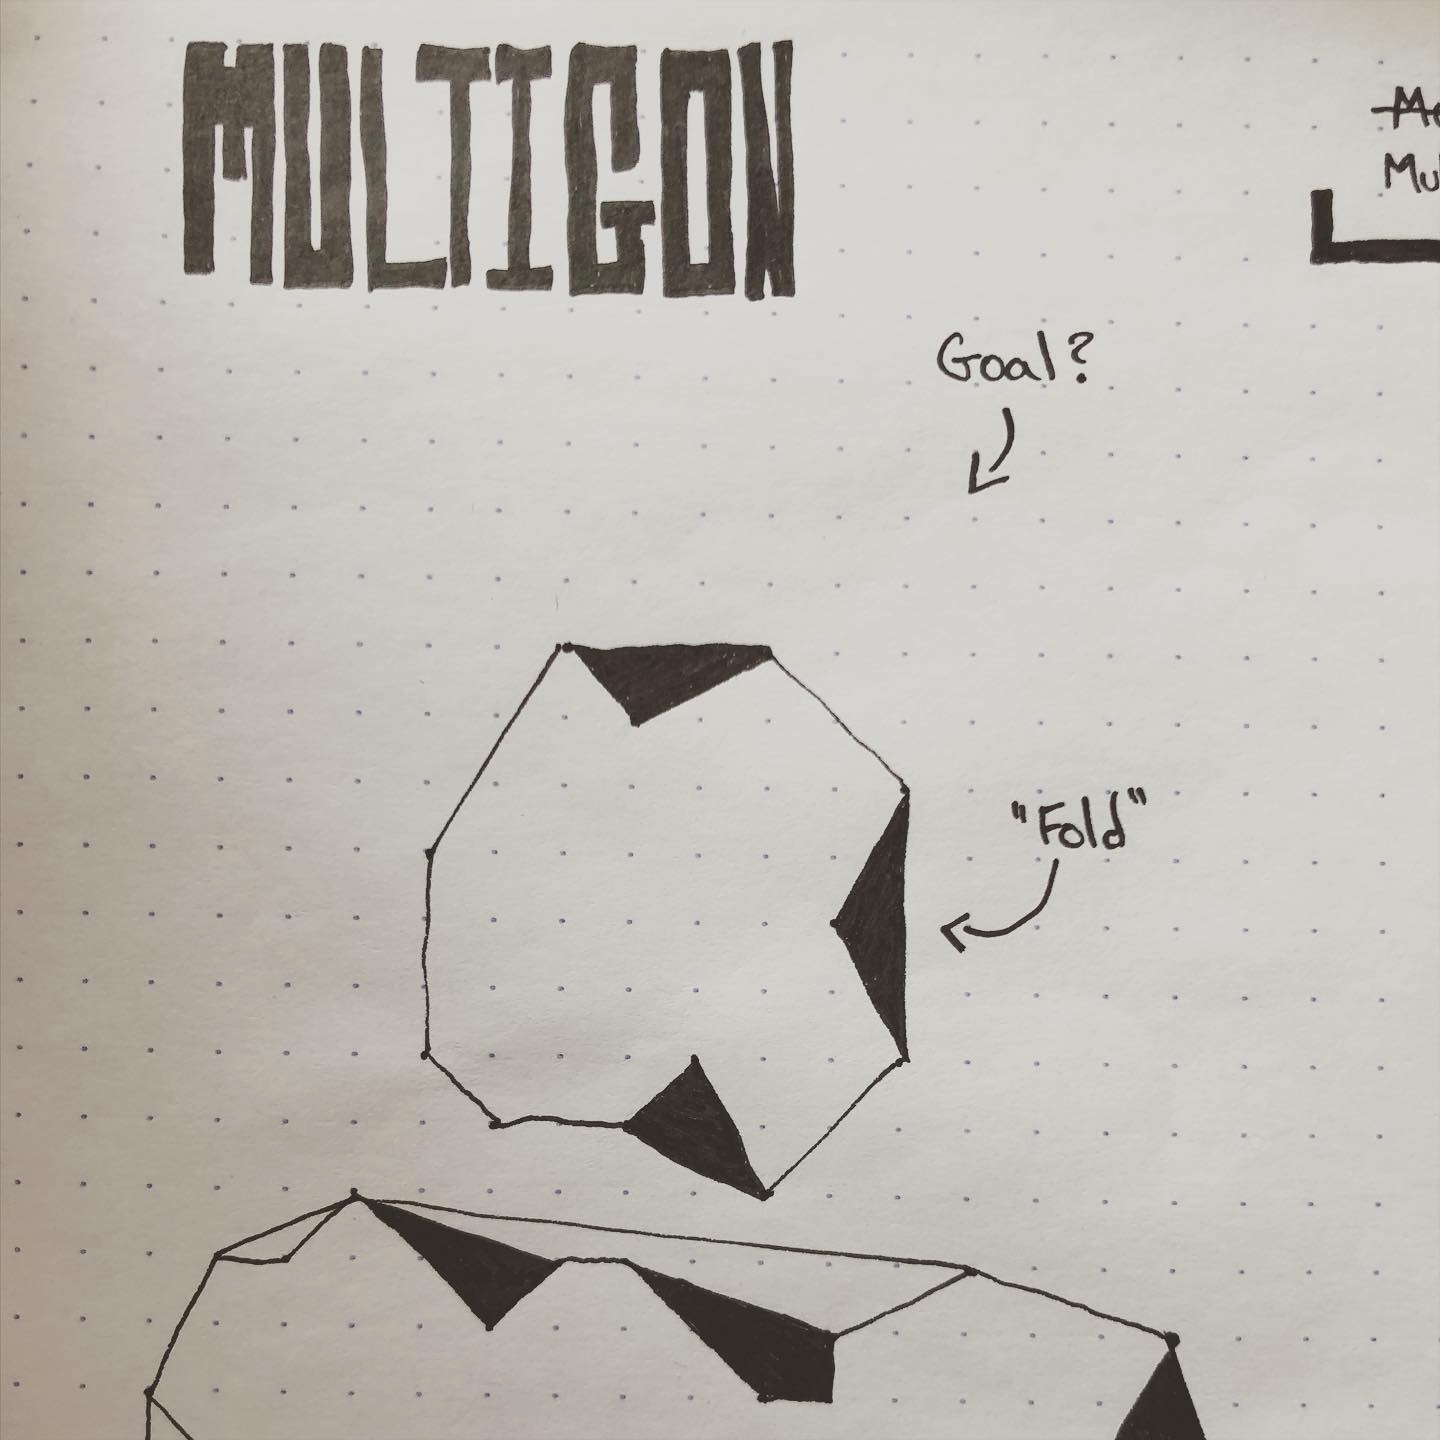 MULTIGON
Goal?
"Fold"